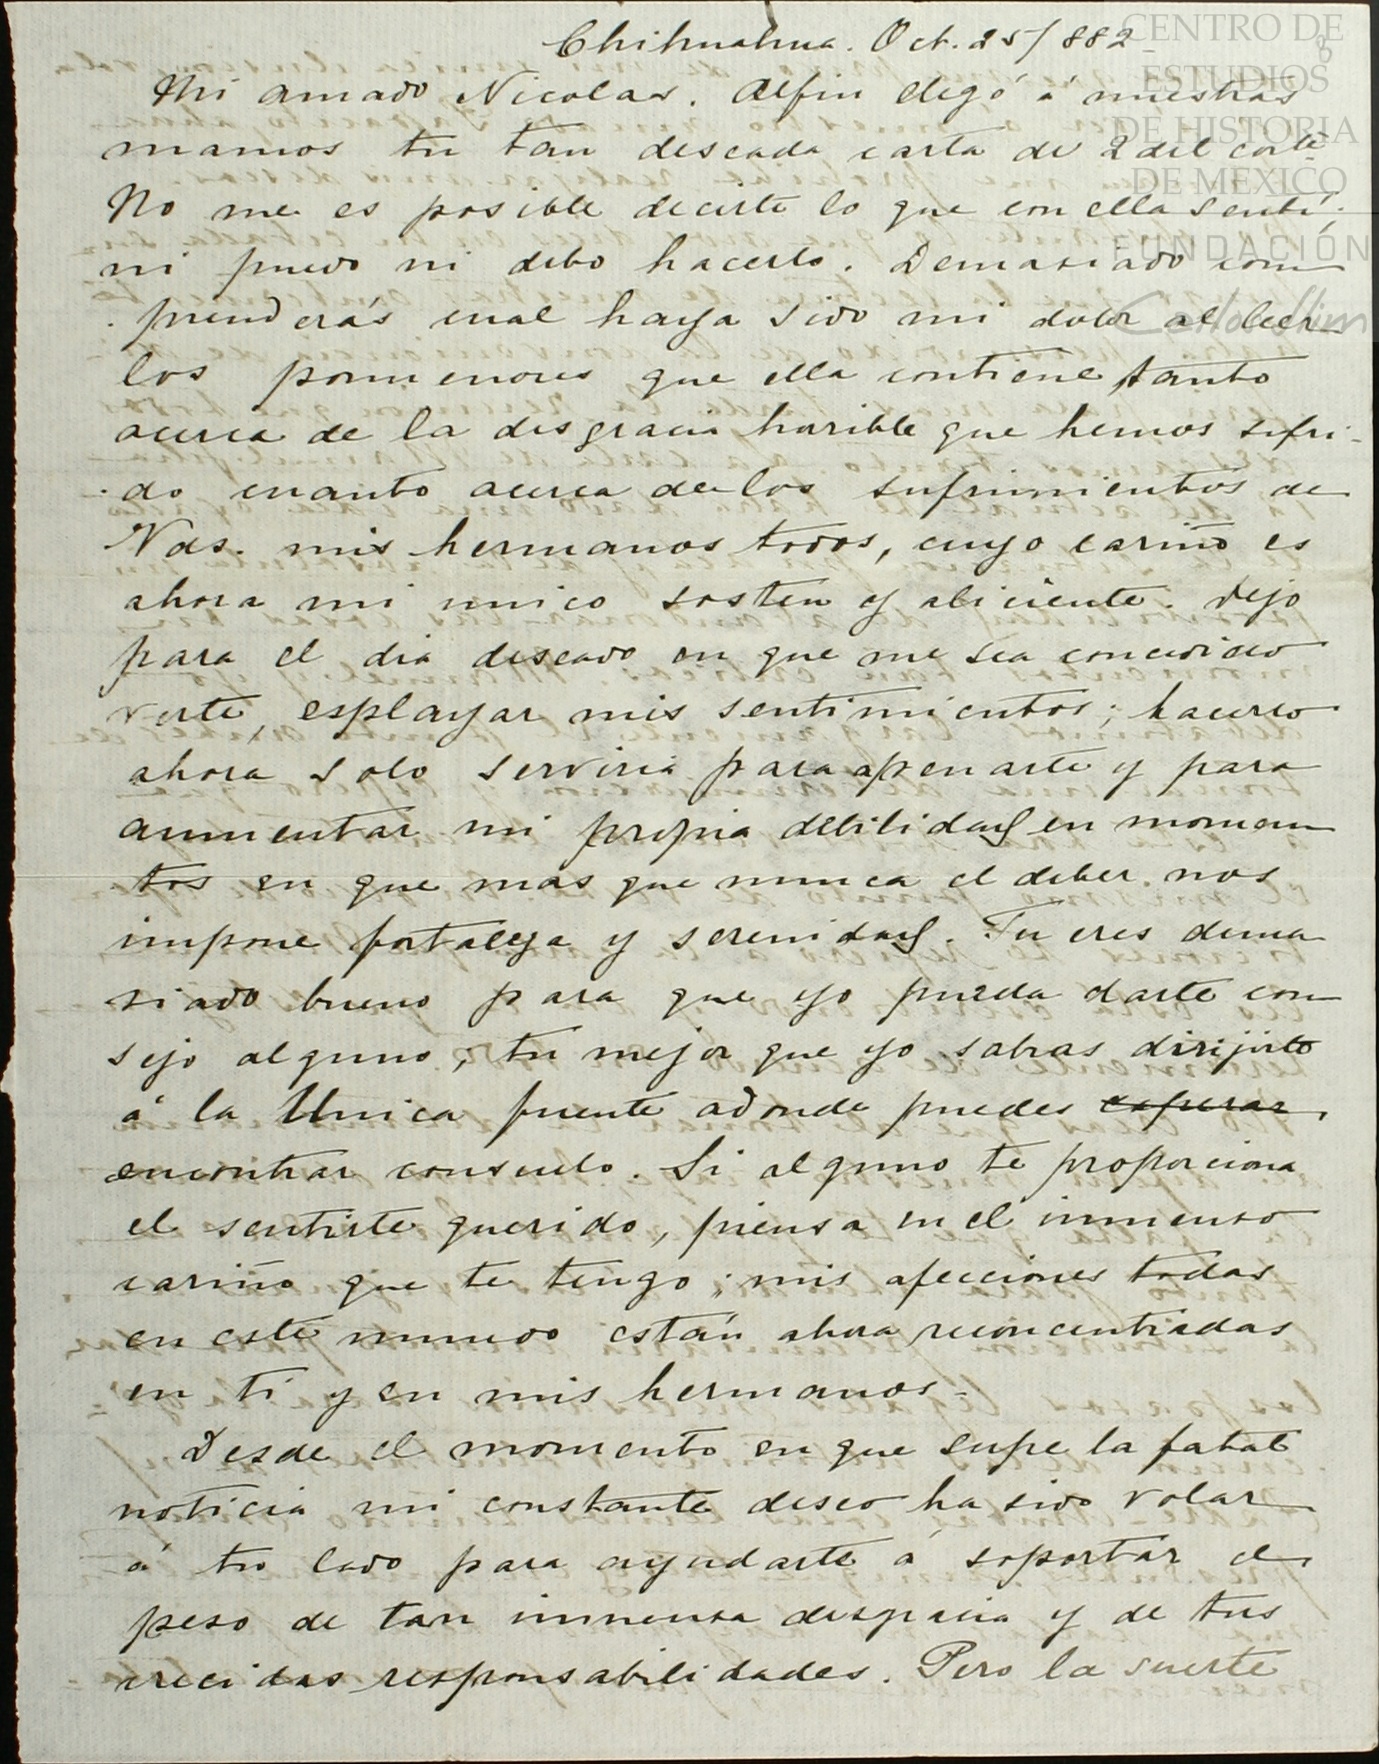 Chihuahua. Oct. 25/882
CENTRO DE
ESTUDIOS
DE HISTORIA
DE MEXICO
FUNDACIÓN
Carlos Slim
8
Mi amado Nicolas. Alfin llegó á nuestras
manos tu tan deseada carta de 2 del corte
No me es posible decirte lo que con ella sentí.
ni puedo ni debo hacerlo. Demasiado com
prenderás cual haya sido mi dolor al leer
los pormenores que ella contiene tanto
acerca de la disgracia horible que hemos sufri-
do cuanto acerca de los sufrimientos de
Vds. mis hermanos todos, cuyo cariño es
ahora mi unico sosten y aliciente. Dejo
para el dia deseado en que me sea concedido
verte, esplayar mis sentimientos; hacerlo
ahora solo serviria para apenarte y para
aumentar mi propia debilidad en momen
tos en que mas que nunca el deber nos
impone fortaleza y serenidad. Tu eres dema
siado bueno para que yo pueda darte con
sejo alguno; tu mejor que yo sabras dirijirte
á la Unica fuente adonde puedes esperar
encontrar consuelo. Si alguno te proporciona
el sentirte querido, piensa en el inmenso
cariño que te tengo; mis afecciones todas
en este mundo están ahora reconcentradas
en ti y en mis hermanos.
Desde el momento en que supe la fatal
noticia mi constante deseo ha sido volar
á tu lado para ayudarte á soportar el
peso de tan inmensa desgracia y de tus
crecidas responsabilidades. Pero la suerte